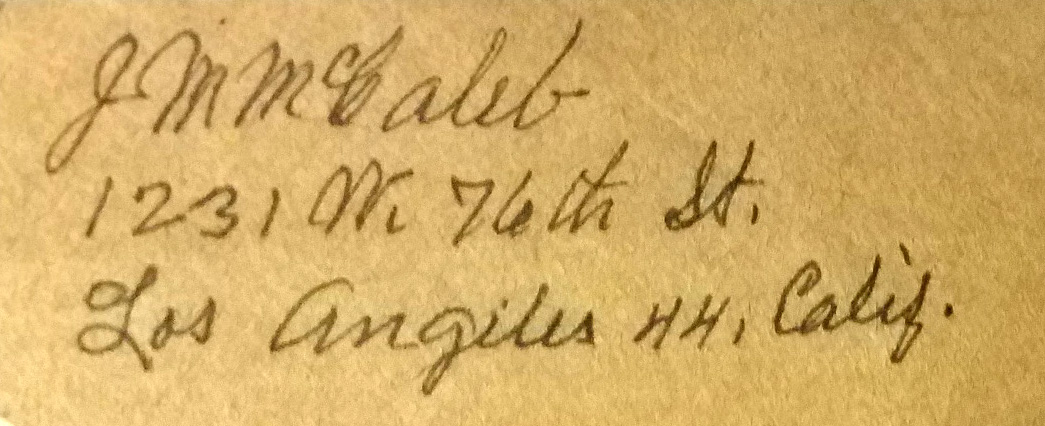 J M McCaleb
1231 W. 76th St.
Los Angeles 44, Calif.